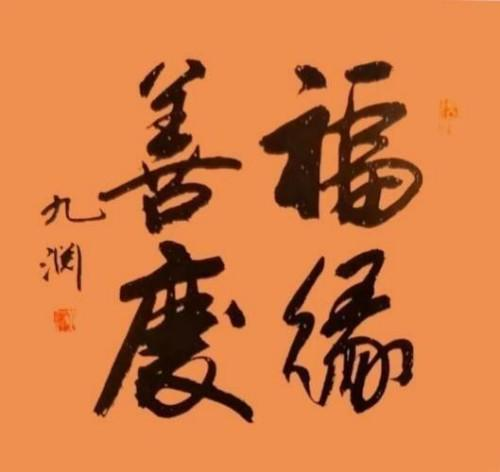 福緣
善慶
九